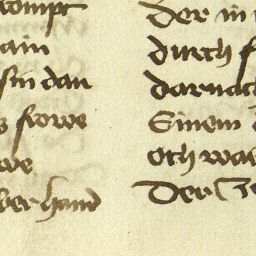 kompt
ain
sin dan
frowe
we
ber hand
Der in
durch
darnach
Sinem
Och wa
Der